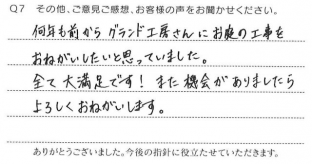 Q7 その他、ご意見ご感想、お客様の声をお聞かせください。
何年も前からグランド工房さんにお庭の工事を
おねがいしたいと思っていました。
全て大満足です！また機会がありましたら
よろしくおねがいします。
ありがとうございました。今後の指針に役立たせていただきます。